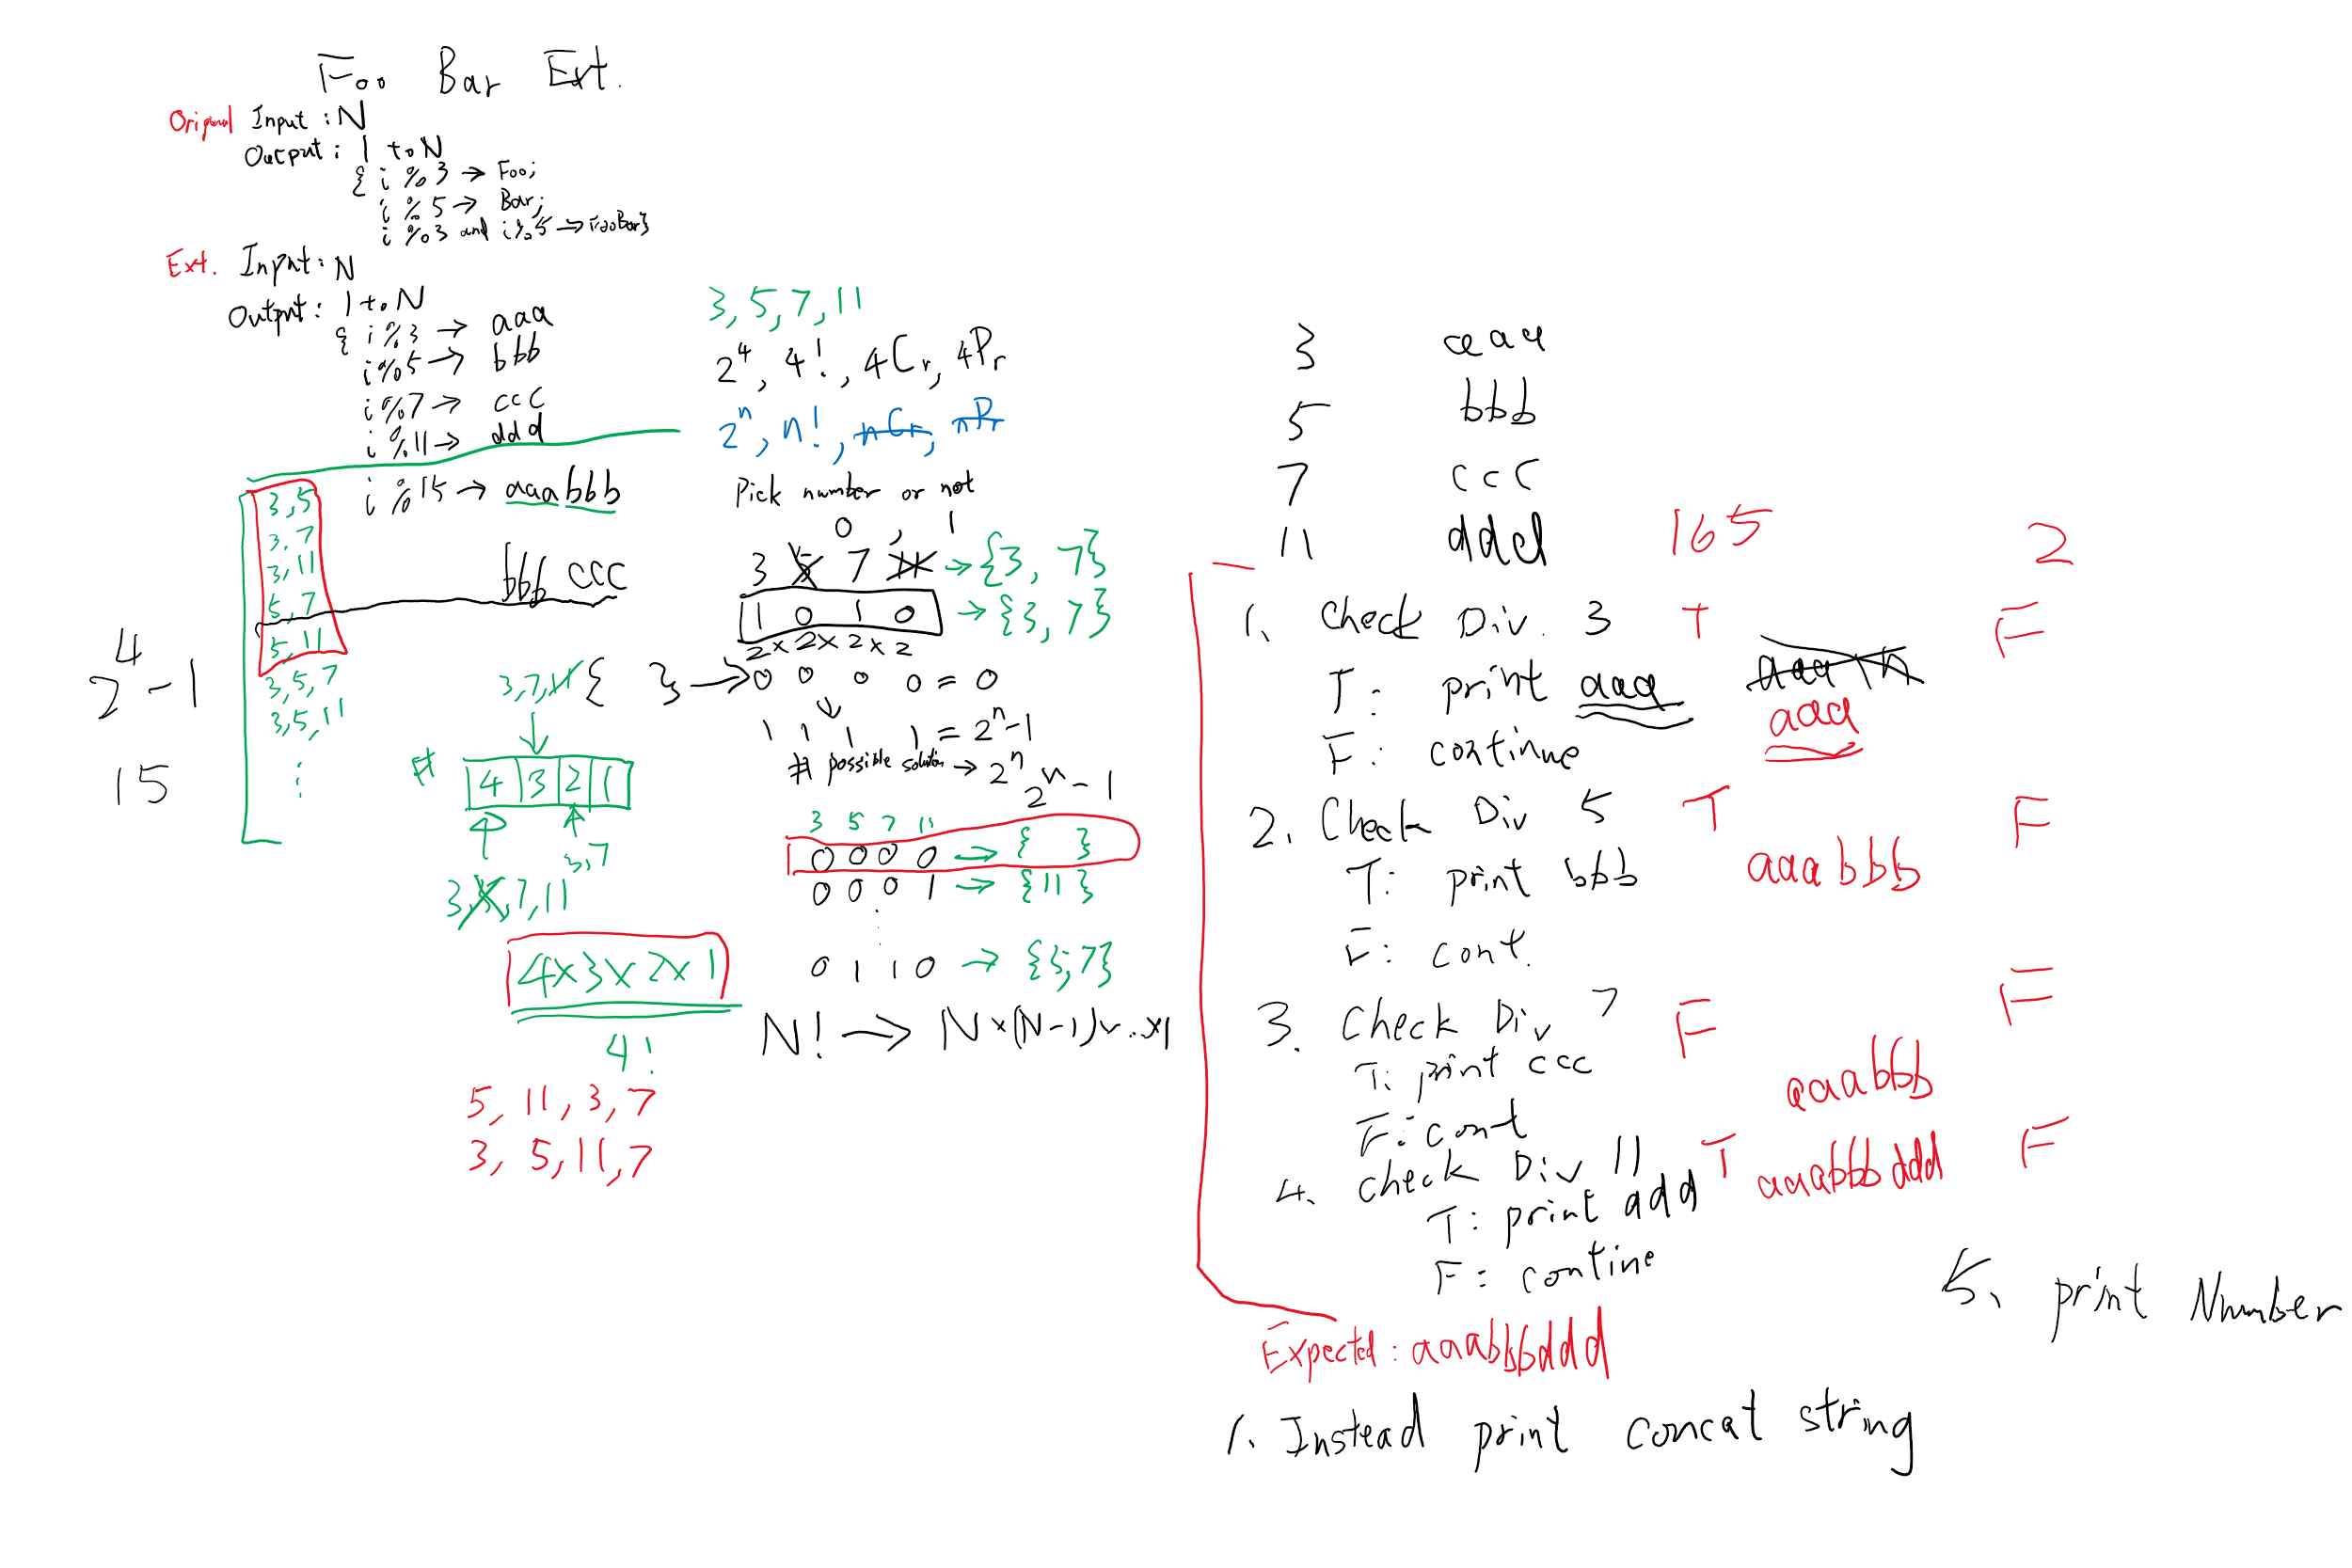 Foo Bar Ext.
Original Input : N
Output : 1 to N
{ i % 3 → Foo;
i % 5 → Bar;
i % 3 and i % 5 → FooBar}
Ext. Input : N
Output : 1 to N
{ i % 3 → aaa
i % 5 → bbb
i % 7 → ccc
i % 11 → ddd
i % 15 → aaabbb
bbb ccc
3,5
3,7
3,11
5,7
5,11
3,5,7
3,5,11
⋮
2^4 - 1
15
3,7,11
# 4 3 2 1
3,7
3,5,7,11
4 x 3 x 2 x 1
4!
5, 11, 3, 7
3, 5, 11, 7
3, 5, 7, 11
2^4, 4!, 4Cr, 4Pr
2^n, n!, nCr, nPr
Pick number or not
0 , 1
3 5 7 11 → {3, 7}
1 0 1 0 → {3, 7}
2 x 2 x 2 x 2
{ } → 0 0 0 0 = 0
↓
1 1 1 1 = 2^n - 1
# possible solution → 2^n
2^n - 1
3 5 7 11
0 0 0 0 → { }
0 0 0 1 → {11}
⋮
0 1 1 0 → {5,7}
N! → N x (N-1) x ... x 1
3 aaa
5 bbb
7 ccc
11 ddd
165 2
1. Check Div. 3 T F
T : print aaa aaa \n
aaa
F : continue
2. Check Div 5 T F
T : print bbb aaabbb
F : cont.
3. Check Div 7 F F
T: print ccc aaabbb
F: cont
4. check Div 11 T aaabbbddd F
T : print ddd
F : contine
5. print Number
Expected : aaabbbddd
1. Instead print concat string